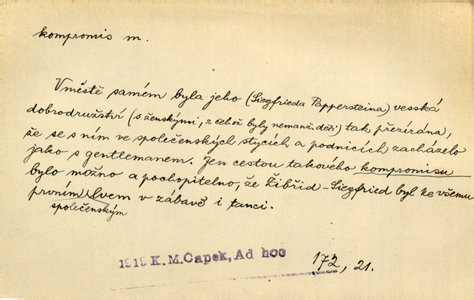 kompromis m.
V městě samém byla jeho (Siegfrieda Pappersteina) vesská
dobrodružství (s ženskými, z čehož byly nemanž. děti) tak přezírána,
že se s ním ve společenských stycích a podnicích zacházelo
jako s gentlemanem. Jen cestou takového kompromisu
bylo možno a pochopitelno, že Žibřid-Siegfried byl ke všemu
prvním lvem v zábavě i tanci.
společenským
1919 K. M. Čapek, Ad hoc 172, 21.